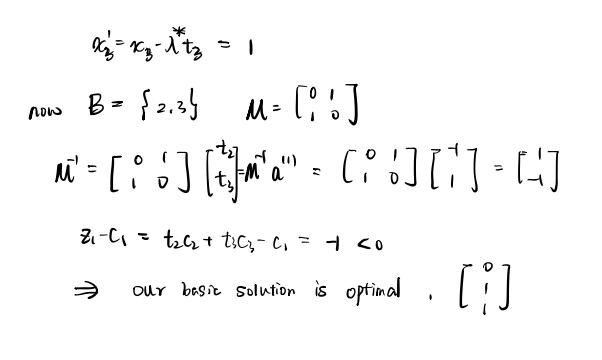 x₃' = x₃ - λ*t₃ = 1
now B = {2,3} M = [0 1; 1 0]
M⁻¹ = [0 1; 1 0] [t₂; t₃] = M⁻¹ a⁽¹⁾ = [0 1; 1 0] [-1; 1] = [1; -1]
z₁-C₁ = t₂C₂ + t₃C₃ - C₁ = -1 < 0
⇒ our basic solution is optimal , [0; 1; 1]